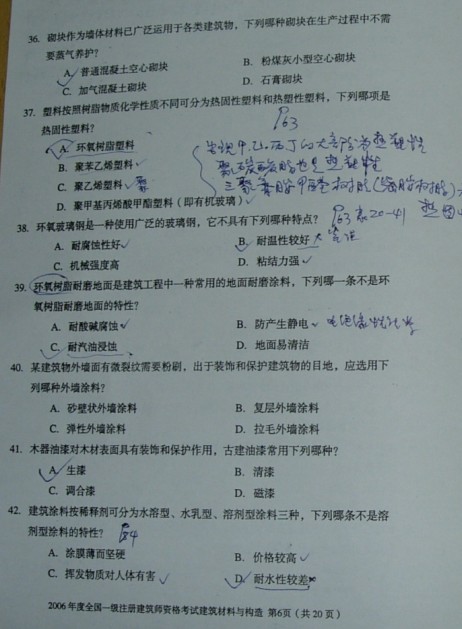 36. 砌块作为墙体材料已广泛运用于各类建筑物，下列哪种砌块在生产过程中不需
要蒸气养护？
A. 普通混凝土空心砌块 B. 粉煤灰小型空心砌块
C. 加气混凝土砌块 D. 石膏砌块
37. 塑料按照树脂物质化学性质不同可分为热固性塑料和热塑性塑料，下列哪项是
热固性塑料？ P63
A. 环氧树脂塑料
B. 聚苯乙烯塑料
C. 聚乙烯塑料
D. 聚甲基丙烯酸甲酯塑料（即有机玻璃）
38. 环氧玻璃钢是一种使用广泛的玻璃钢，它不具有下列哪种特点？ P63 表20-41
A. 耐腐蚀性好 B. 耐温性较好
C. 机械强度高 D. 粘结力强
39. 环氧树脂耐磨地面是建筑工程中一种常用的地面耐磨涂料，下列哪一条不是环
氧树脂耐磨地面的特性？
A. 耐酸碱腐蚀 B. 防产生静电
C. 耐汽油浸蚀 D. 地面易清洁
40. 某建筑物外墙面有微裂纹需要粉刷，出于装饰和保护建筑物的目地，应选用下
列哪种外墙涂料？
A. 砂壁状外墙涂料 B. 复层外墙涂料
C. 弹性外墙涂料 D. 拉毛外墙涂料
41. 木器油漆对木材表面具有装饰和保护作用，古建油漆常用下列哪种？
A. 生漆 B. 清漆
C. 调合漆 D. 磁漆
42. 建筑涂料按稀释剂可分为水溶型、水乳型、溶剂型涂料三种，下列哪条不是溶
剂型涂料的特性？
A. 涂膜薄而坚硬 B. 价格较高
C. 挥发物质对人体有害 D. 耐水性较差
2006 年度全国一级注册建筑师资格考试建筑材料与构造 第6页（共 20 页）